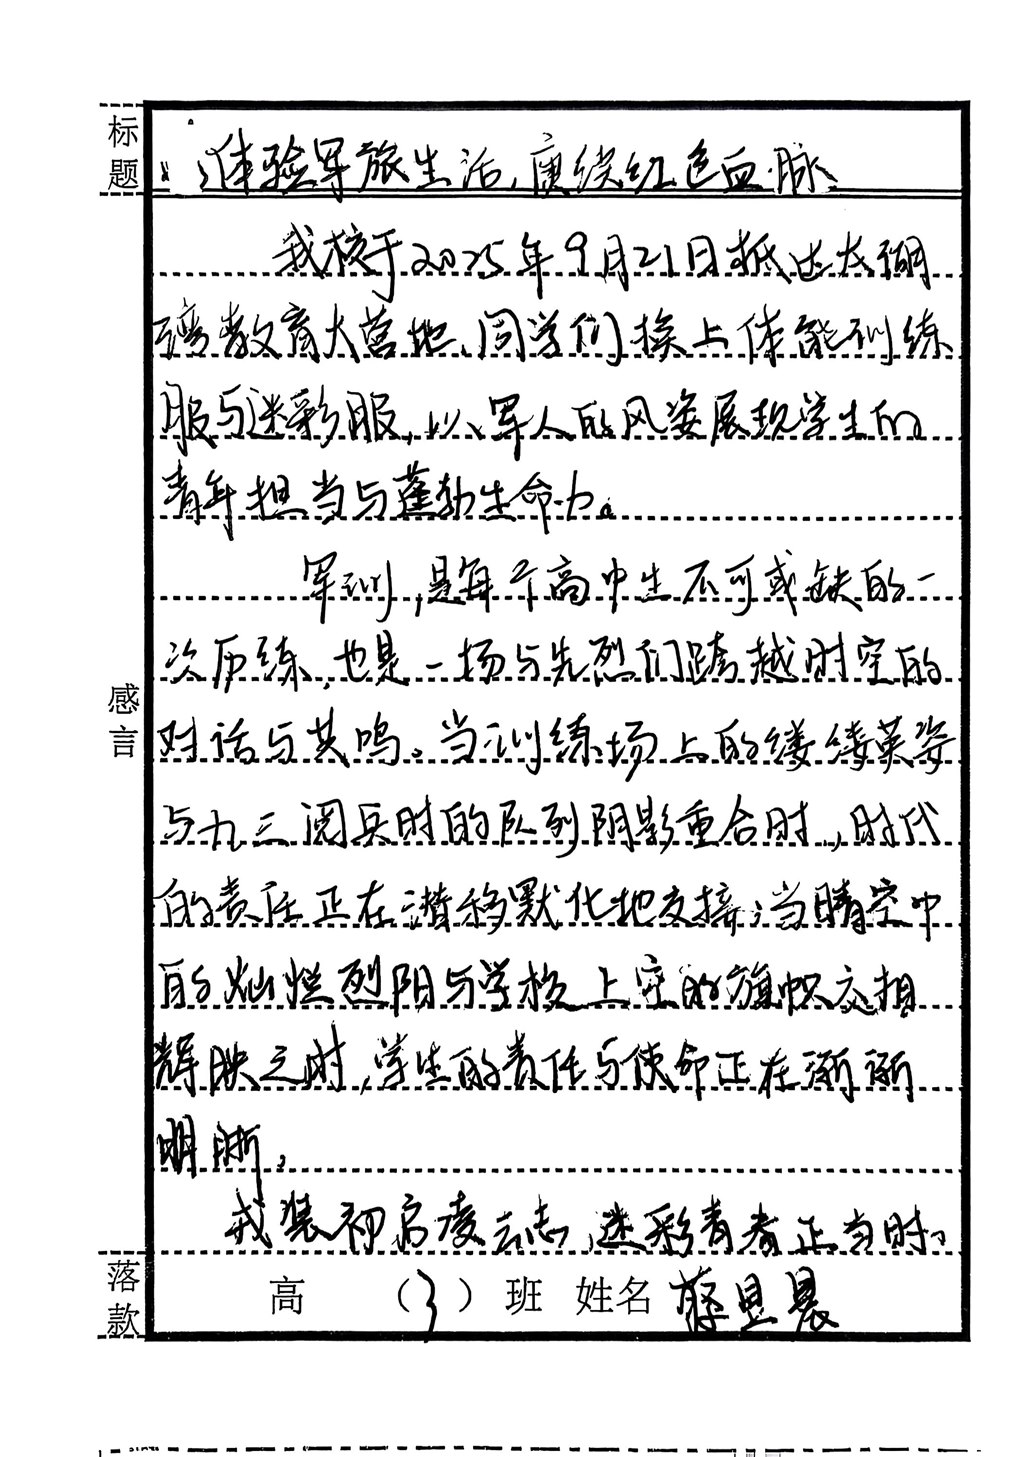 标题
体验军旅生活，赓续红色血脉
我校于2025年9月21日抵达太湖
湾教育大营地，同学们换上体能训练
服与迷彩服，以军人的风姿展现学生的
青年担当与蓬勃生命力。
军训，是每个高中生不可或缺的一
次历练，也是一场与先烈们跨越时空的
对话与共鸣。当训练场上的缕缕英姿
与九三阅兵时的队列阴影重合时，时代
的责任正在潜移默化地交接；当晴空中
的灿烂烈阳与学校上空的旗帜交相
辉映之时，学生的责任与使命正在渐渐
明晰。
戎装初启凌云志，迷彩青春正当时。
感言
落款
高 （3）班 姓名